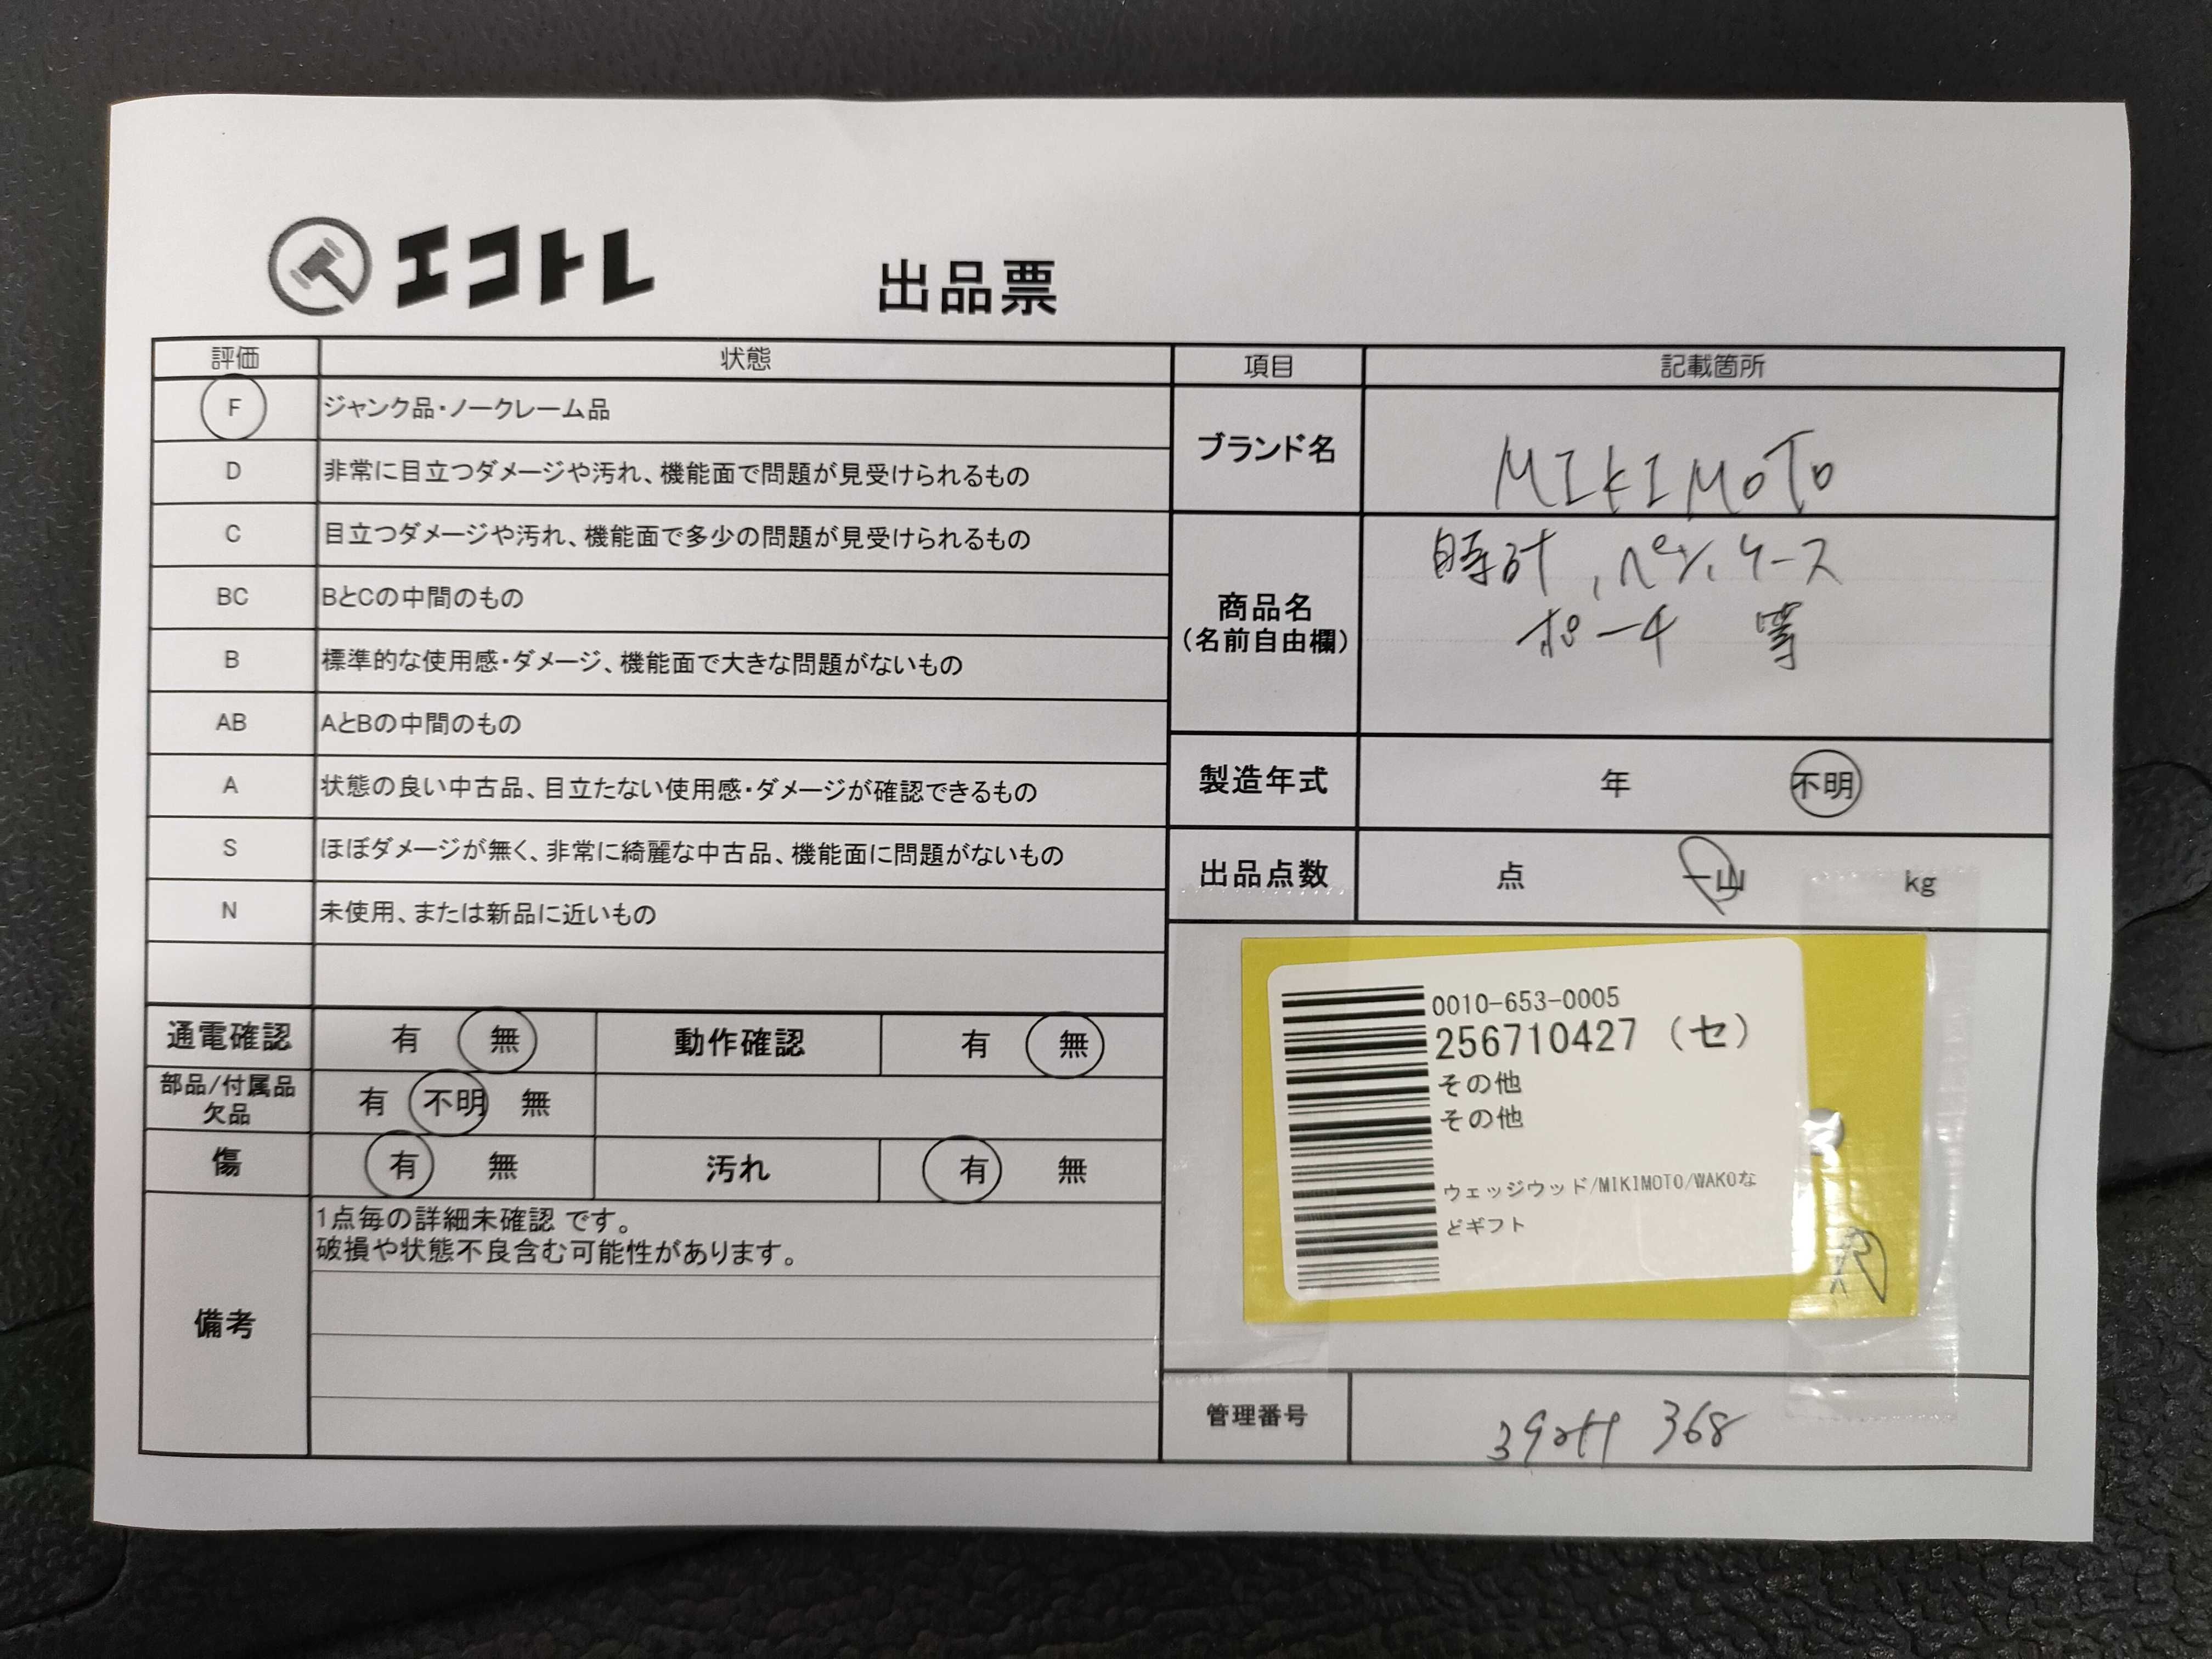 エコトレ
出品票
評価 状態
F ジャンク品・ノークレーム品
D 非常に目立つダメージや汚れ、機能面で問題が見受けられるもの
C 目立つダメージや汚れ、機能面で多少の問題が見受けられるもの
BC BとCの中間のもの
B 標準的な使用感・ダメージ、機能面で大きな問題がないもの
AB AとBの中間のもの
A 状態の良い中古品、目立たない使用感・ダメージが確認できるもの
S ほぼダメージが無く、非常に綺麗な中古品、機能面に問題がないもの
N 未使用、または新品に近いもの
通電確認 有 無 動作確認 有 無
部品/付属品
欠品
有 不明 無
傷 有 無 汚れ 有 無
備考
1点毎の詳細未確認 です。
破損や状態不良含む可能性があります。
項目 記載箇所
ブランド名 MIKIMOTO
商品名
(名前自由欄)
時計、ペン、ケース
ポーチ 等
製造年式 年 不明
出品点数 点 一山 kg
0010-653-0005
256710427 (セ)
その他
その他
ウェッジウッド/MIKIMOTO/WAKOな
どギフト
管理番号 368